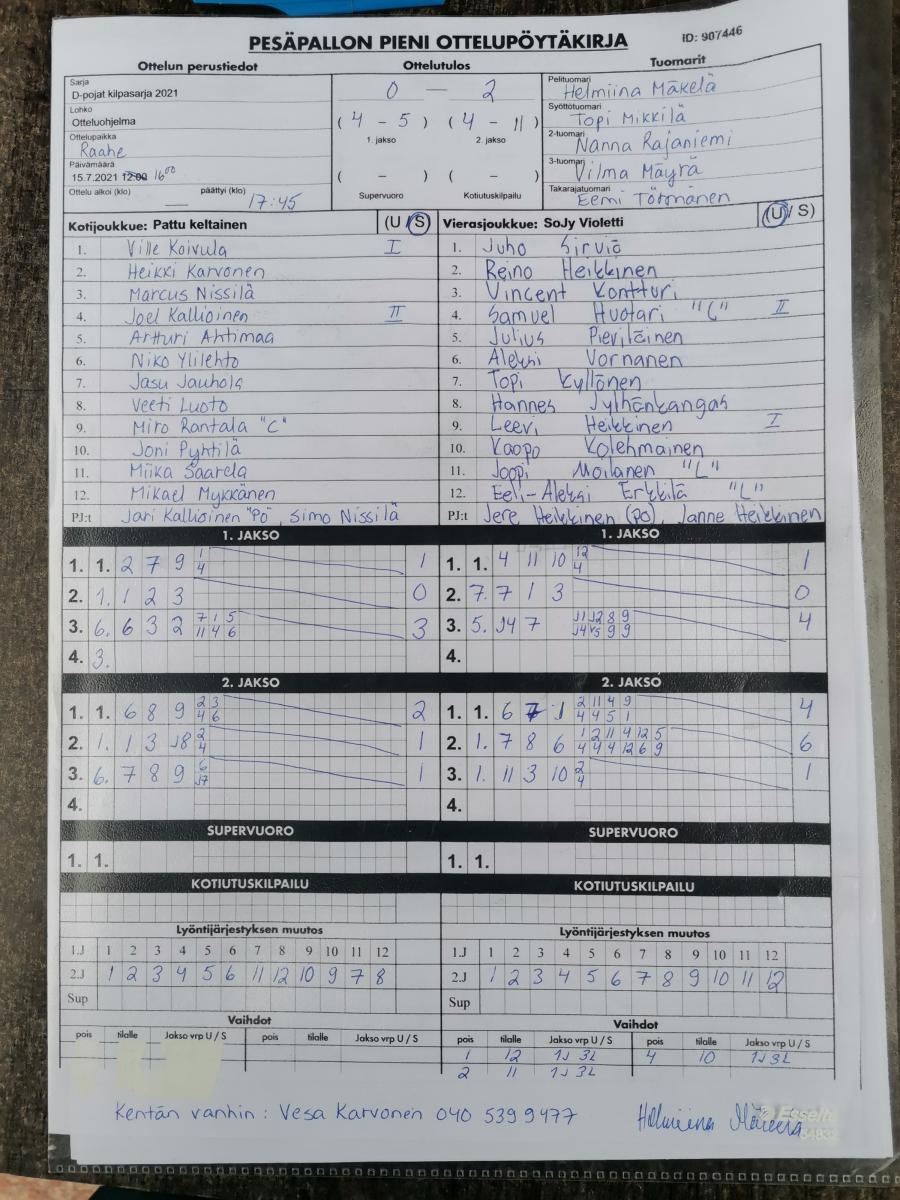 PESÄPALLON PIENI OTTELUPÖYTÄKIRJA ID: 907446
Ottelun perustiedot Ottelutulos Tuomarit
Sarja
D-pojat kilpasarja 2021
Lohko
Otteluohjelma
Ottelupaikka
Raahe
Päivämäärä
15.7.2021 12:00 16⁰⁰
Ottelu alkoi (klo) — päättyi (klo) 17:45
0 — 2
( 4 - 5 ) ( 4 - 11 )
1. jakso 2. jakso
( - ) ( - )
Supervuoro Kotiutuskilpailu
Pelituomari
Helmiina Mäkelä
Syöttötuomari
Topi Mikkilä
2-tuomari
Nanna Rajaniemi
3-tuomari
Vilma Mäyrä
Takarajatuomari
Eemi Törmänen
Kotijoukkue: Pattu keltainen (U / S)
1. Ville Koivula I
2. Heikki Karvonen
3. Marcus Nissilä
4. Joel Kallioinen II
5. Artturi Ahtimaa
6. Niko Ylilehto
7. Jasu Jauhola
8. Veeti Luoto
9. Miro Rantala "C"
10. Joni Pyhtilä
11. Miika Saarela
12. Mikael Mykkänen
PJ:t Jari Kallioinen "PO", Simo Nissilä
Vierasjoukkue: SoJy Violetti (U / S)
1. Juho Sirviö
2. Reino Heikkinen
3. Vincent Kontturi
4. Samuel Huotari "C" II
5. Julius Pieviläinen
6. Aleksi Vornanen
7. Topi Kyllönen
8. Hannes Jylhänkangas
9. Leevi Heikkinen I
10. Kaapo Kolehmainen
11. Joopi Moilanen "L"
12. Eeli-Aleksi Erkkilä "L"
PJ:t Jere Heikkinen (PO), Janne Heikkinen
1. JAKSO
1. 1. 2 7 9 1 1
4
2. 1. 1 2 3 0
3. 6. 6 3 2 7 1 5 3
11 4 6
4. 3.
1. JAKSO
1. 1. 4 11 10 12 1
4
2. 7. 7 1 3 0
3. 5. J4 7 J1 J2 8 9 4
4.
2. JAKSO
1. 1. 6 8 9 2 3 2
4 6
2. 1. 1 3 J8 2 1
4
3. 6. 7 8 9 6 1
J7
4.
2. JAKSO
1. 1. 6 7 1 2 11 4 9 4
4 4 5 1
2. 1. 7 8 6 1 2 11 4 12 5 6
4 4 4 12 6 9
3. 1. 11 3 10 2 1
4
4.
SUPERVUORO
1. 1.
SUPERVUORO
1. 1.
KOTIUTUSKILPAILU
KOTIUTUSKILPAILU
Lyöntijärjestyksen muutos
1.J 1 2 3 4 5 6 7 8 9 10 11 12
2.J 1 2 3 4 5 6 11 12 10 9 7 8
Sup
Lyöntijärjestyksen muutos
1.J 1 2 3 4 5 6 7 8 9 10 11 12
2.J 1 2 3 4 5 6 7 8 9 10 11 12
Sup
Vaihdot
pois tilalle Jakso vrp U / S pois tilalle Jakso vrp U / S
Vaihdot
pois tilalle Jakso vrp U / S pois tilalle Jakso vrp U / S
1 12 1J 3L 4 10 1J 3L
2 11 1J 3L
Kentän vanhin : Vesa Karvonen 040 539 9477
Helmiina Mäkelä
Esselte